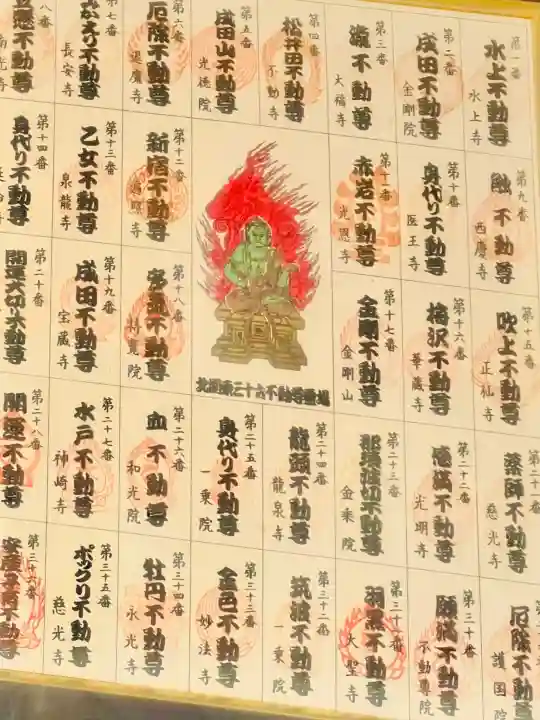 第一番
水上不動尊
水上寺
第二番
成田不動尊
金剛院
第三番
流不動尊
大福寺
第四番
松井田不動尊
不動寺
第五番
成田山不動尊
光徳院
第六番
厄除不動尊
第七番
不動尊
長安寺
八番
不動尊
第九番
融不動尊
西慶寺
第十番
身代り不動尊
医王寺
第十一番
赤岩不動尊
光恩寺
第十二番
新宿不動尊
第十三番
乙女不動尊
泉龍寺
第十四番
身代り不動尊
第十五番
吹上不動尊
正仙寺
第十六番
梅沢不動尊
華蔵寺
第十七番
金剛不動尊
金剛山
第十八番
不動尊
第十九番
成田不動尊
宝蔵寺
第二十番
開運大切り不動尊
北関東三十六不動尊霊場
第二十一番
薬師不動尊
慈光寺
第二十二番
感満不動尊
光明寺
第二十三番
那須波切不動尊
金乗院
第二十四番
龍頭不動尊
龍泉寺
第二十五番
身代り不動尊
一乗院
第二十六番
血不動尊
和光院
第二十七番
水戸不動尊
神崎寺
第二十八番
開運不動尊
厄除不動尊
護国院
第三十番
願満不動尊
不動尊院
第三十一番
羽黒不動尊
大聖寺
第三十二番
筑波不動尊
一乗院
第三十三番
金色不動尊
妙法寺
第三十四番
牡丹不動尊
永光寺
第三十五番
ポックリ不動尊
慈光寺
第三十六番
安産子育不動尊